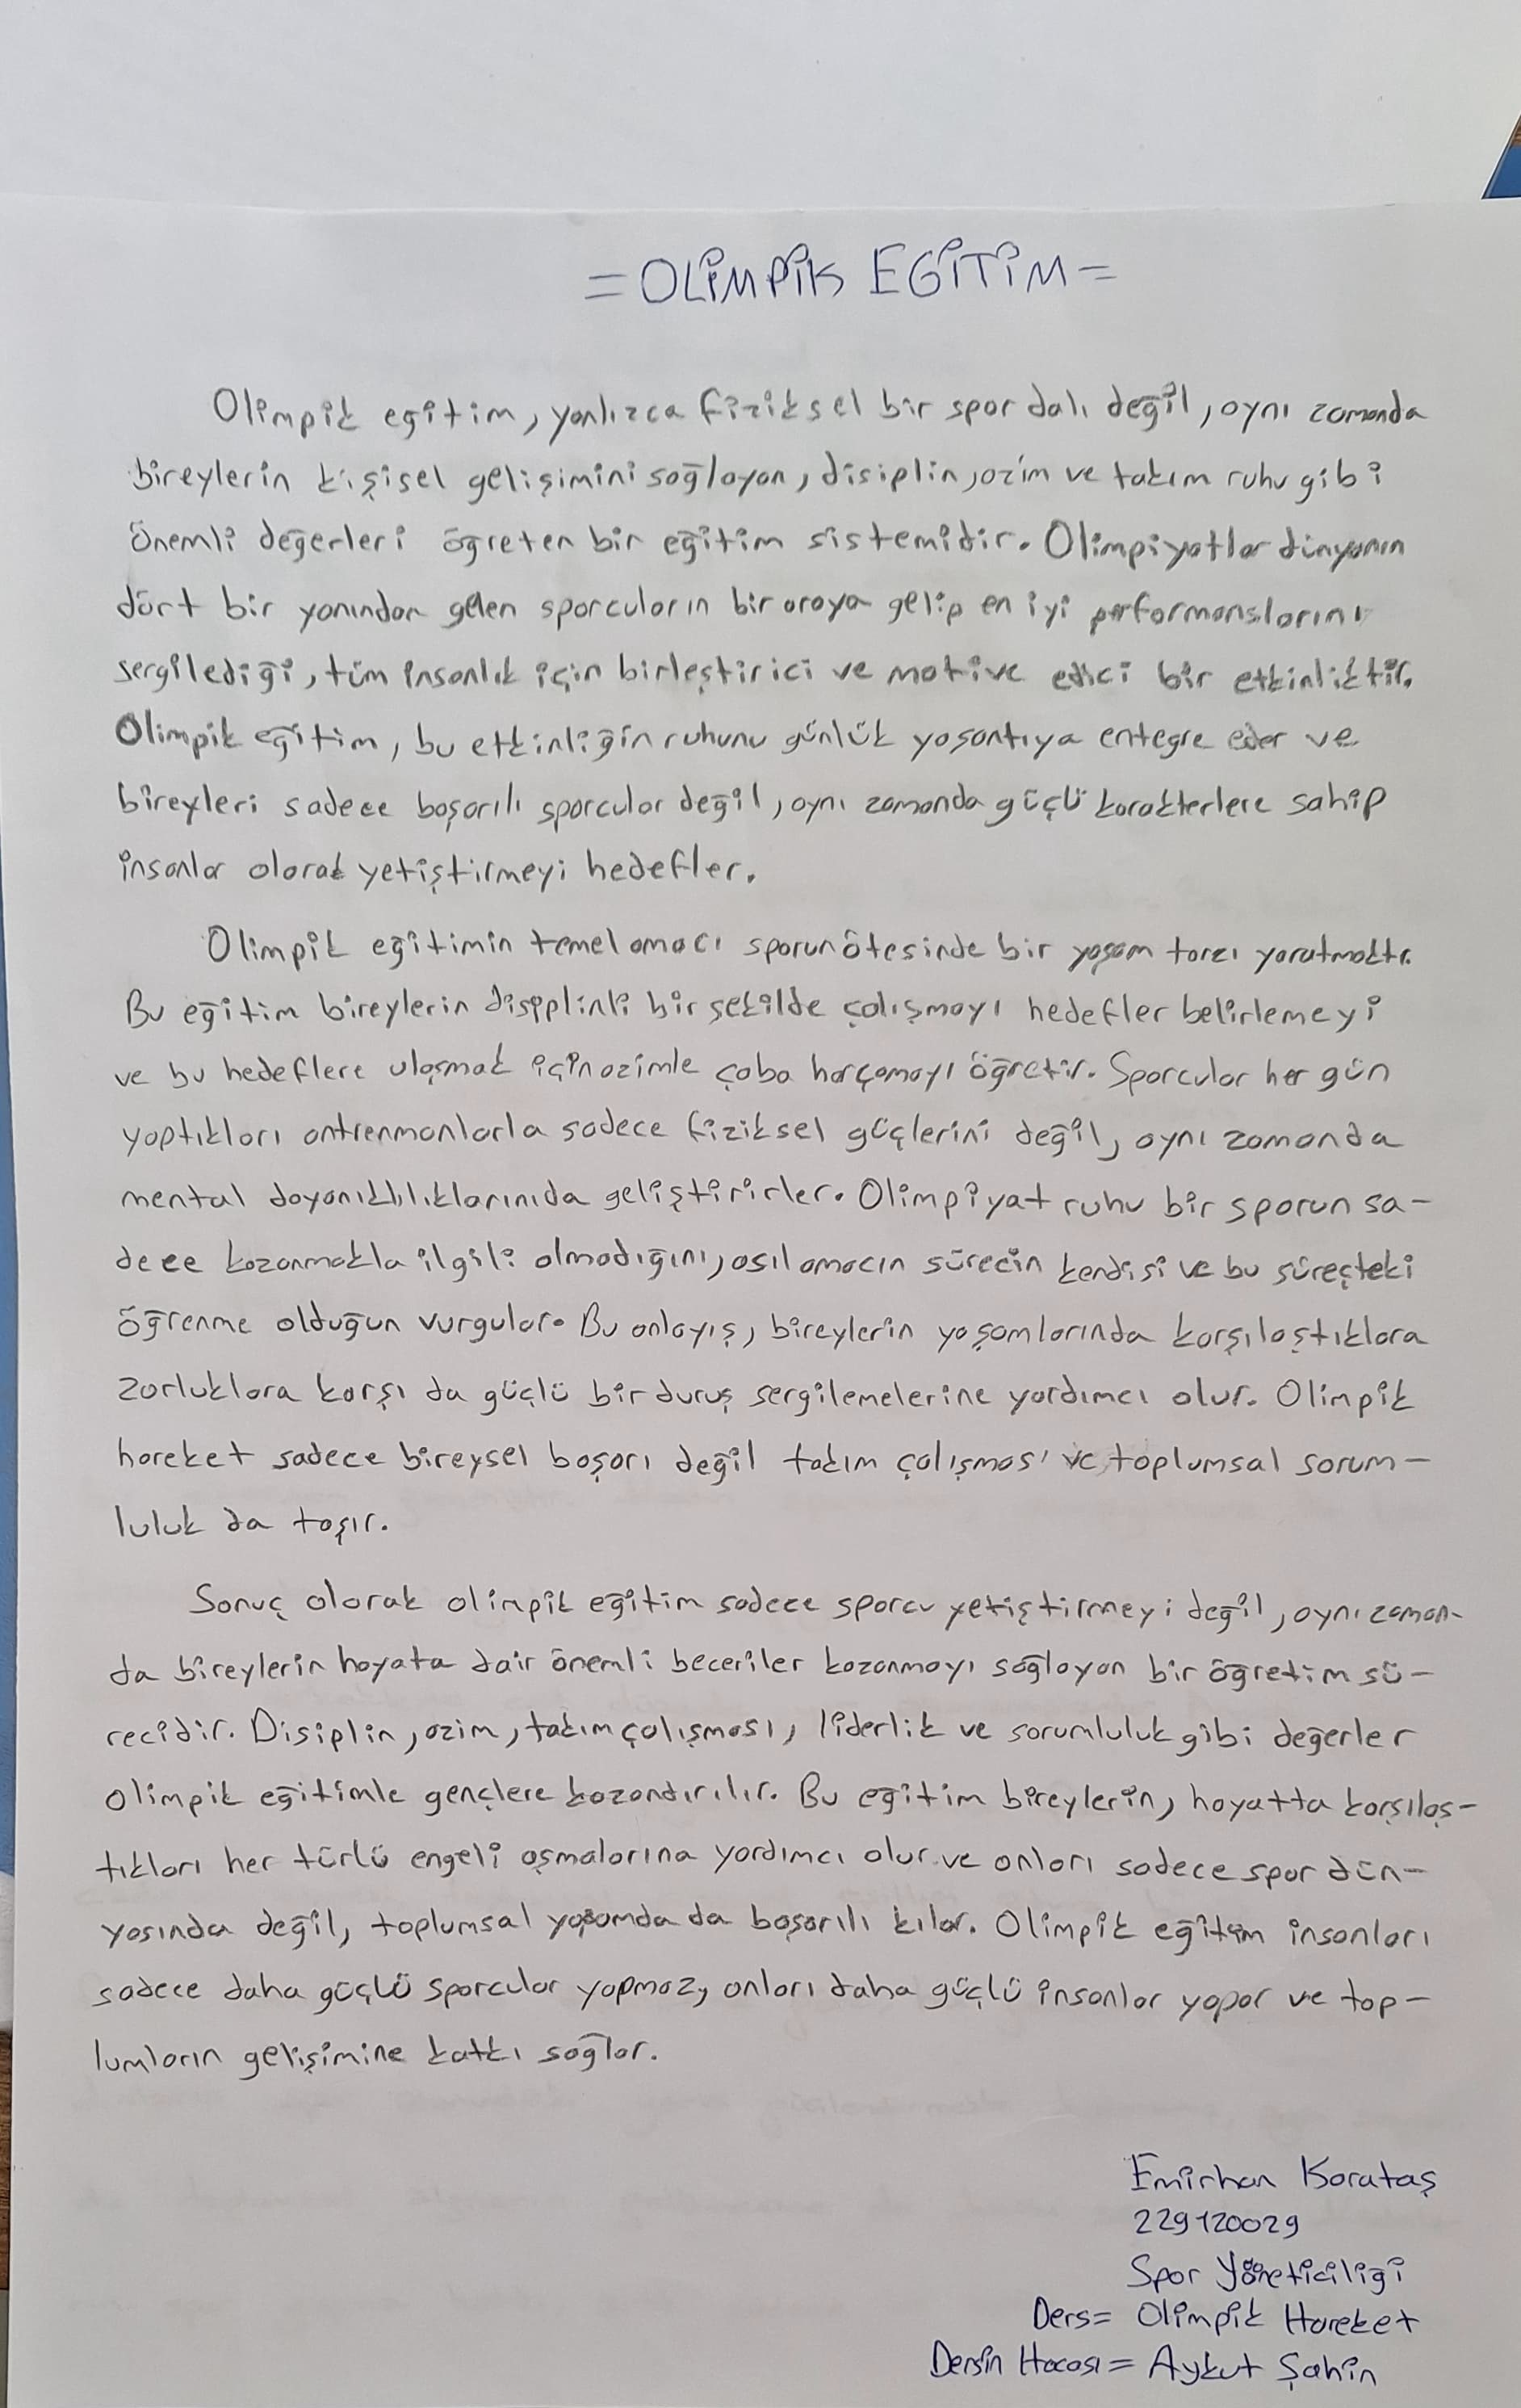 = OLİMPİK EGİTİM =
Olimpik egitim, yanlızca fiziksel bir spor dalı değil, aynı zamanda
bireylerin kişisel gelişimini sağlayan, disiplin, azim ve takım ruhu gibi
önemli değerleri ögreten bir eğitim sistemidir. Olimpiyatlar dünyanın
dört bir yanından gelen sporcuların bir araya gelip en iyi performanslarını
sergilediği, tüm insanlık için birleştirici ve motive edici bir etkinliktir.
Olimpik eğitim, bu etkinliğin ruhunu günlük yaşantıya entegre eder ve
bireyleri sadece başarılı sporcular değil, aynı zamanda güçlü karakterlere sahip
insanlar olarak yetiştirmeyi hedefler.
Olimpik eğitimin temel amacı sporun ötesinde bir yaşam tarzı yaratmaktı.
Bu eğitim bireylerin disiplinli bir şekilde çalışmayı hedefler belirlemeyi
ve bu hedeflere ulaşmak için azimle çaba harçamayı öğretir. Sporcular her gün
yaptıkları antrenmanlarla sadece fiziksel güçlerini değil, aynı zamanda
mental dayanıklılıklarınıda geliştirirler. Olimpiyat ruhu bir sporun sa-
dece kazanmakla ilgili olmadığını, asıl amacın sürecin kendisi ve bu süreçteki
öğrenme olduğun vurgular. Bu anlayış, bireylerin yaşamlarında karşılaştıklara
zorluklara karşı da güçlü bir duruş sergilemelerine yardımcı olur. Olimpik
hareket sadece bireysel başarı değil takım çalışması ve toplumsal sorum-
luluk da taşır.
Sonuç olarak olimpik eğitim sadece sporcu yetiştirmeyi değil, aynı zaman-
da bireylerin hayata dair önemli beceriler kazanmayı sağlayan bir öğretim sü-
recidir. Disiplin, azim, takım çalışması, liderlik ve sorumluluk gibi değerler
olimpik eğitimle gençlere kazandırılır. Bu eğitim bireylerin, hayatta karşılaş-
tıkları her türlü engeli aşmalarına yardımcı olur ve onları sadece spor dün-
yasında değil, toplumsal yaşamda da başarılı kılar. Olimpik eğitim insanları
sadece daha güçlü sporcular yapmaz, onları daha güçlü insanlar yapar ve top-
lumların gelişimine katkı sağlar.
Emirhan Karataş
229120029
Spor Yöneticiliği
Ders= Olimpik Hareket
Dersin Hocası= Aykut Şahin